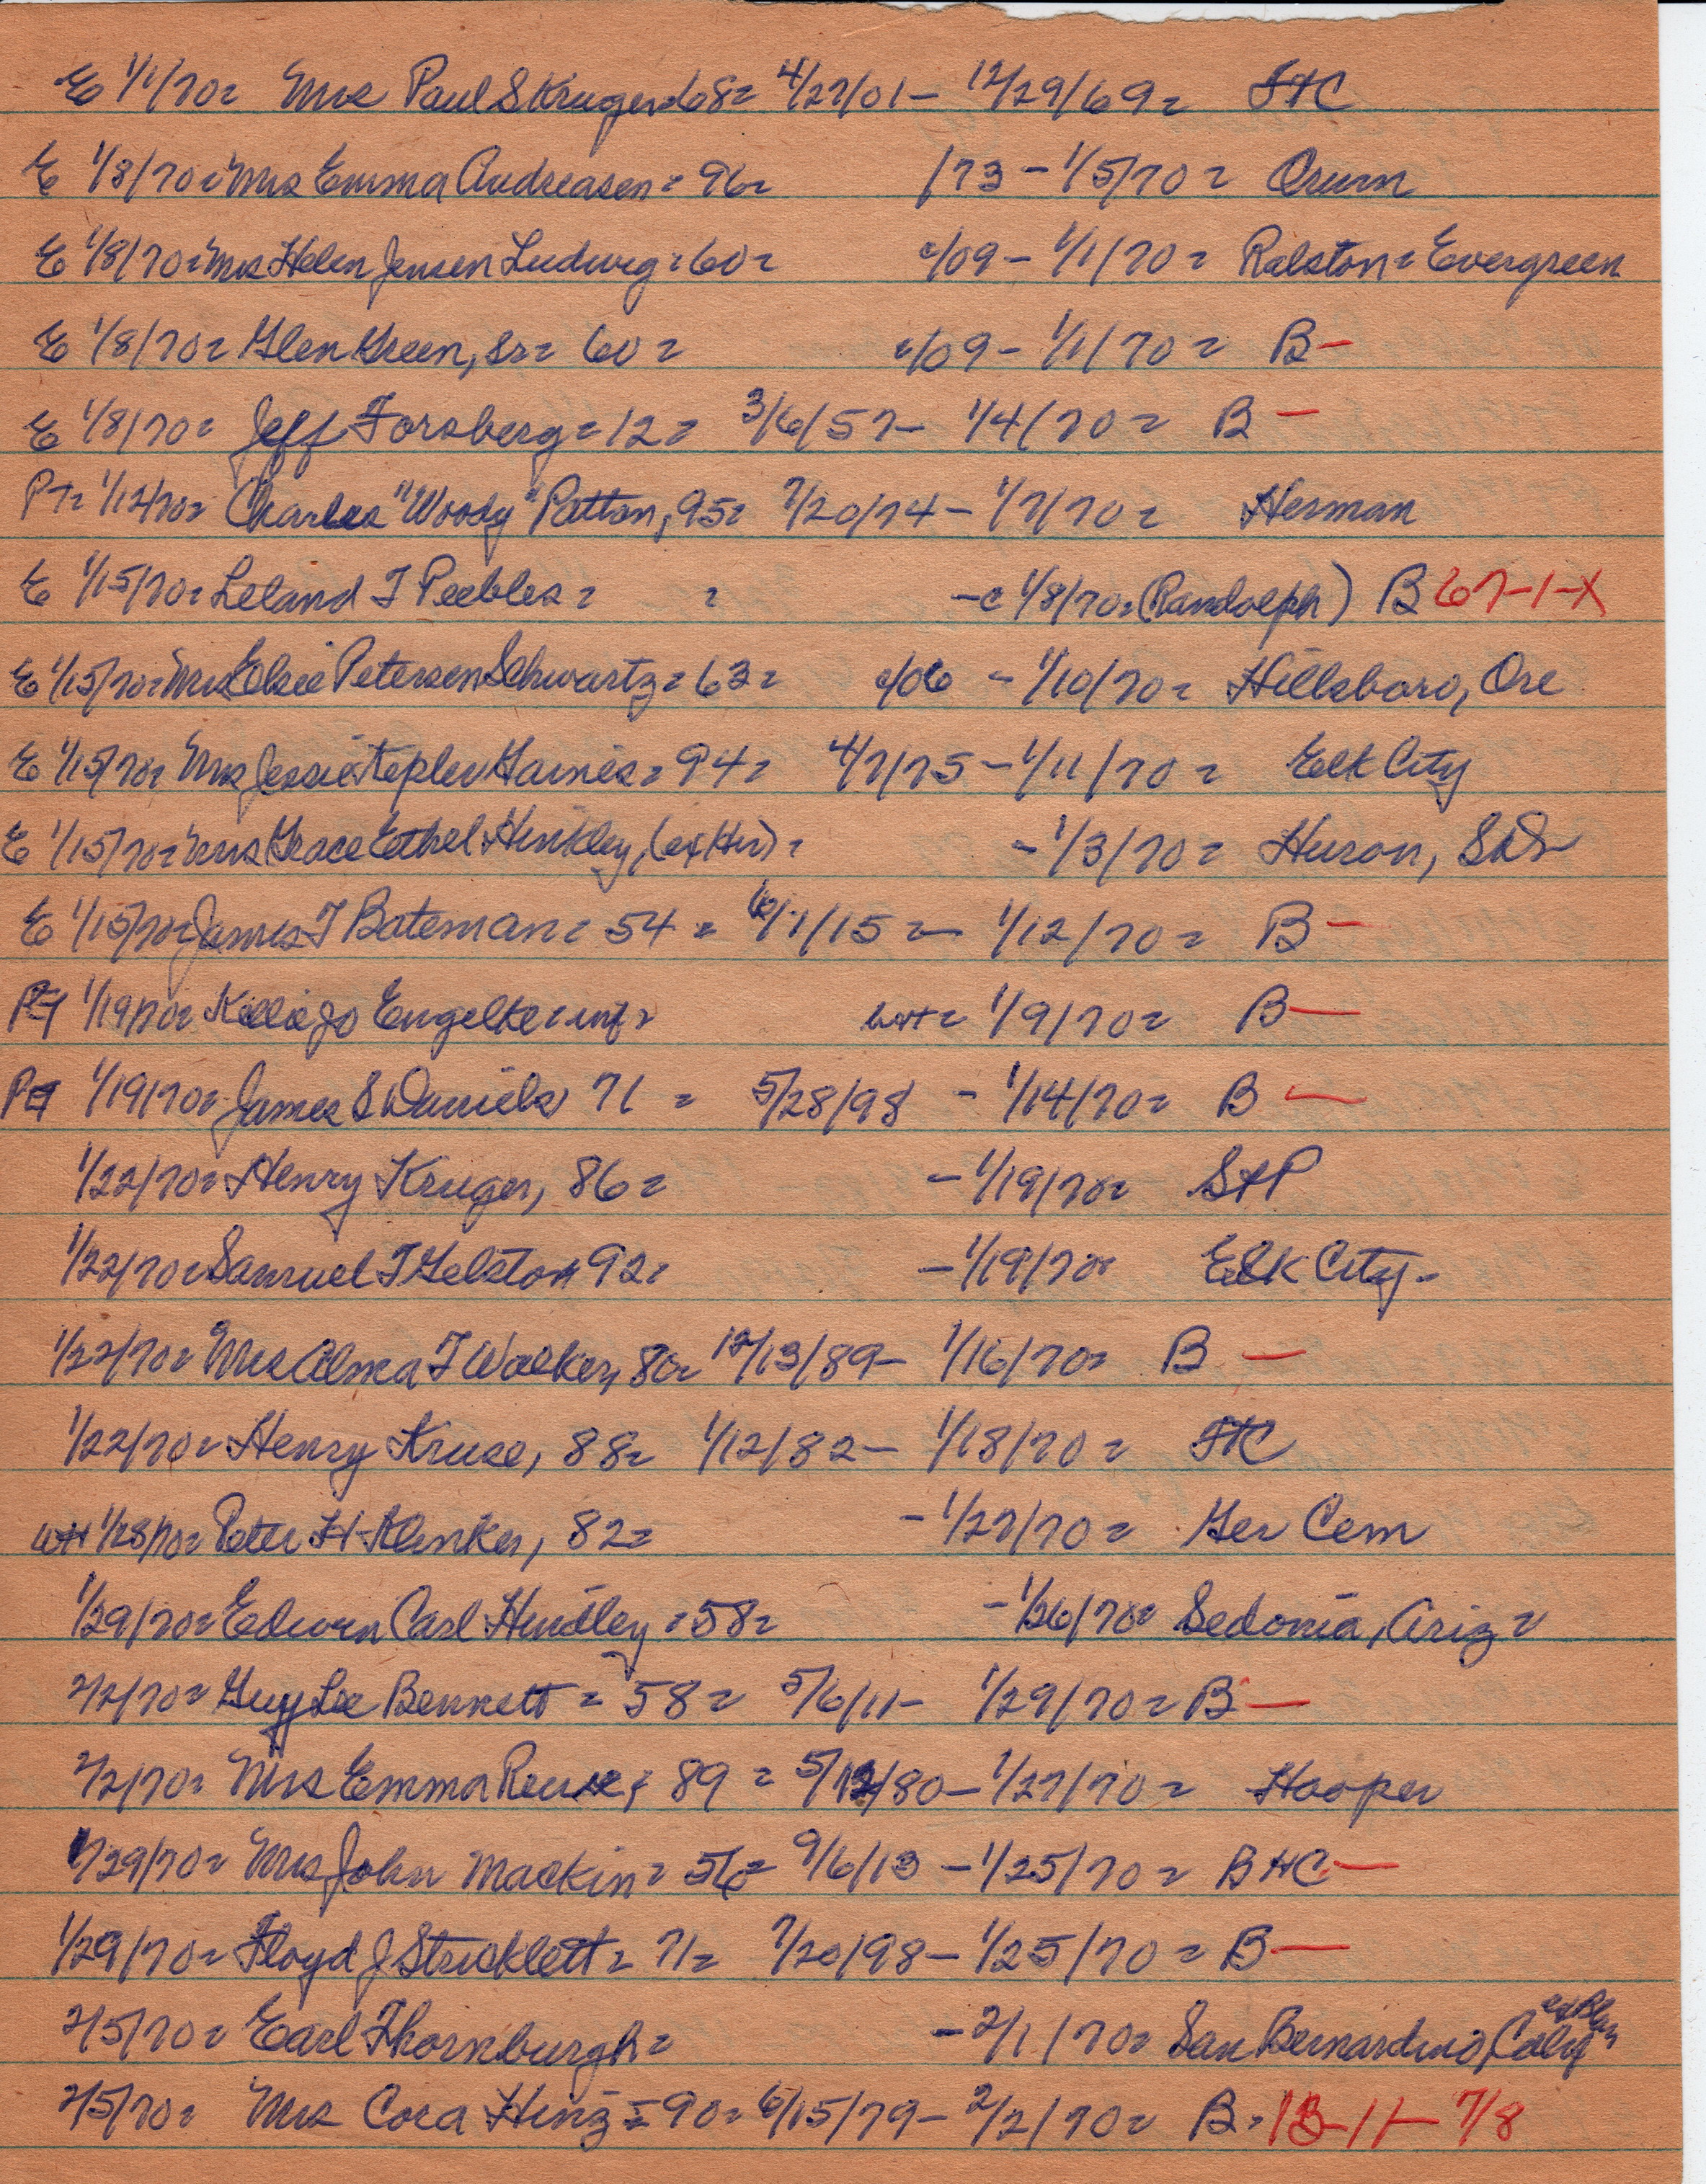 E 1/1/70= Mrs Paul S Kruger=68= 4/27/01– 12/29/69= FtC
E 1/8/70= Mrs Emma Andreasen= 96= /73 – 1/5/70= Orum
E 1/8/70= Mrs Helen Jensen Ludwig=60= c/09 – 1/1/70= Ralston= Evergreen
E 1/8/70= Glen Green, Sr= 60= c/09 – 1/1/70= B –
E 1/8/70= Jeff Forsberg=12= 3/6/57– 1/4/70= B –
PT= 1/12/70= Charles "Woody" Patton, 95= 7/20/74– 1/7/70= Herman
E 1/15/70= Leland T Peebles= = –c 1/8/70=(Randolph) B 67-1-X
E 1/15/70= Mrs Elsie Petersen Schwartz= 63= c/06 – 1/10/70= Hillsboro, Ore
E 1/15/70= Mrs Jessie Kepler Gaines= 94= 4/7/75–1/11/70= Elk City
E 1/15/70= Mrs Grace Ethel Hinkley, (ex Her)= –1/3/70= Huron, SD
E 1/15/70= James T Bateman= 54= 6/7/15 – 1/12/70= B –
PT 1/19/70= Kellie Jo Engelke= inf= 1/9/70= B –
PT 1/19/70= James S Daniels 71 = 5/28/98 – 1/14/70= B –
1/22/70= Henry Kruger, 86= –1/19/70= StP
1/22/70= Samuel T Gelston 92= –1/19/70= Elk City–
1/22/70= Mrs Alma T Walker, 80= 12/13/89– 1/16/70= B –
1/22/70= Henry Kruse, 88= 1/12/82– 1/18/70= FtC
WH 1/28/70= Peter H Klenker, 82= –1/27/70= Ger Cem
1/29/70= Edwin Carl Hindley=58= –1/26/70= Sedonia, Ariz=
2/2/70= Guy Lee Bennett= 58= 5/6/11– 1/29/70= B –
2/2/70= Mrs Emma, 89 = 5/12/80–1/27/70= Hooper
1/29/70= Mrs John Mackin= 56= 9/6/13 –1/25/70= BHC –
1/29/70= Floyd J Stricklett= 71= 7/20/98– 1/25/70= B –
2/5/70= Earl Thornburgh= –2/1/70= San Bernardino, Calif
2/5/70= Mrs Cora Hinz=90= 6/15/79– 2/2/70= B= 13-11- 7/8